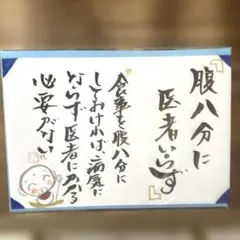 『腹八分に
医者いらず』
食事を腹八分に
しておければ、病気に
ならず医者にかかる
必要がない